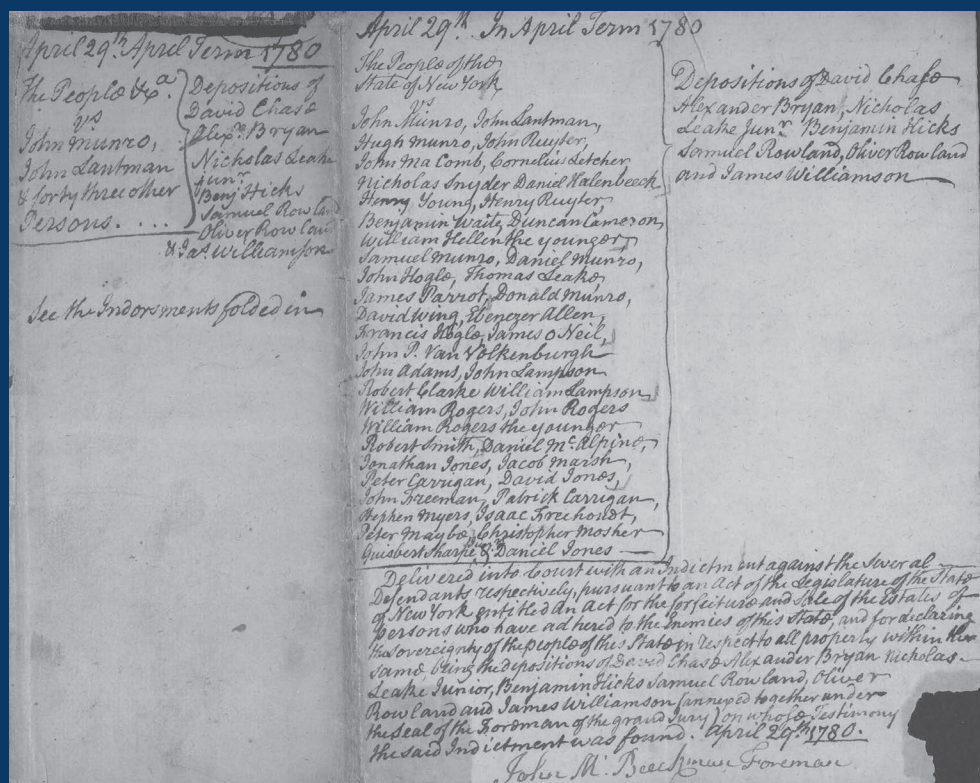 April 29th April Term 1780
The People &ca
vs
John Munro,
John Lantman
& forty three other
Persons. . . . .
Depositions of
David Chase
Alexr. Bryan
Nicholas Leake
junr.
Benj Hicks
Samuel Rowland
Oliver Rowland
& Jas. Williamson
See the Indorsments folded in
April 29th. In April Term 1780
The People of the
State of New York
vs
John Munro, John Lantman,
Hugh Munro, John Ruyter,
John Ma Comb, Cornelius Letcher
Nicholas Snyder Daniel Halenbeeck
Henry Young, Henry Ruyter
Benjamin Waite, Duncan Cameron,
William Hellen the younger,
Samuel Munro, Daniel Munro,
John Hogle, Thomas Leake,
James Parrot, Donald Munro,
David Wing, Ebenezer Allen,
Francis Hogle, James O Neil,
John P. Van Volkenburgh
John Adams, John Lampson
Robert Clarke William Lampson,
William Rogers, John Rogers
William Rogers the younger
Robert Smith, Daniel Mc.Alpine,
Jonathan Jones, Jacob Marsh,
Peter Carrigan, David Jones,
John Freeman, Patrick Carrigan,
Stephen Myers, Isaac Freehoudt,
Peter Maybe, Christopher Mosher
Guisbert Sharpe & Daniel Jones
Depositions of David Chase
Alexander Bryan, Nicholas
Leake Junr. Benjamin Hicks
Samuel Rowland, Oliver Rowland
and James Williamson
Delivered into Court with an Indictment against the several
Defendants respectively, pursuant to an Act of the Legislature of the State
of New York entitled an Act for the forfeiture and Sale of the Estates of
persons who have adhered to the Enemies of this State, and for declaring
the sovereignty of the people of this State in respect to all property within the
same, being the depositions of David Chase Alexander Bryan Nicholas
Leake Junior, Benjamin Hicks Samuel Rowland, Oliver
Rowland and James Williamson (annexed together under
the seal of the Foreman of the grand Jury) on whose Testimony
the said Indictment was found. April 29th 1780.
John M. Beeckman Foreman